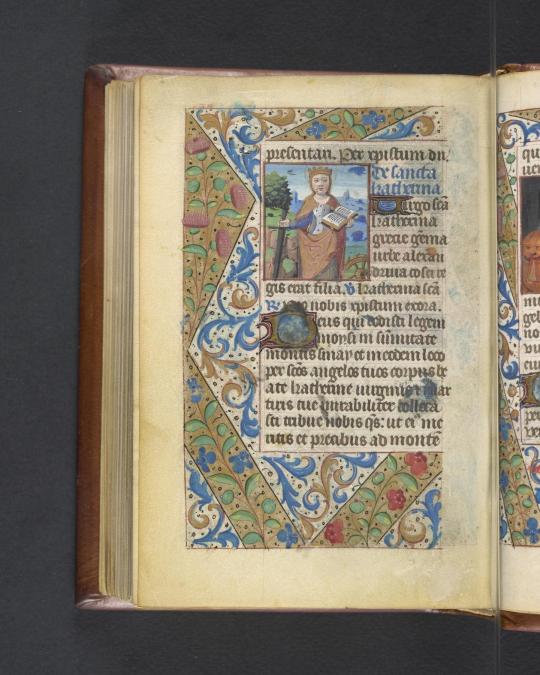 presentari. Per xpistum dn̄.
De sancta
katherina
Virgo scā
katherina
grecie gēma
urbe alexan
drina costi re
gis erat filia. V̷ katherina scā
R̷ nobis xpistum exora.
Deus qui dedisti legem
moysi in sūmitate
montis sinay et in eodem loco
per scōs angelos tuos corpus be
ate katherine virginis et mar
tiris tue mirabiliter collocā
sti tribue nobis qs̄: ut eiꝰ me
ritis et precibus ad montē
qu